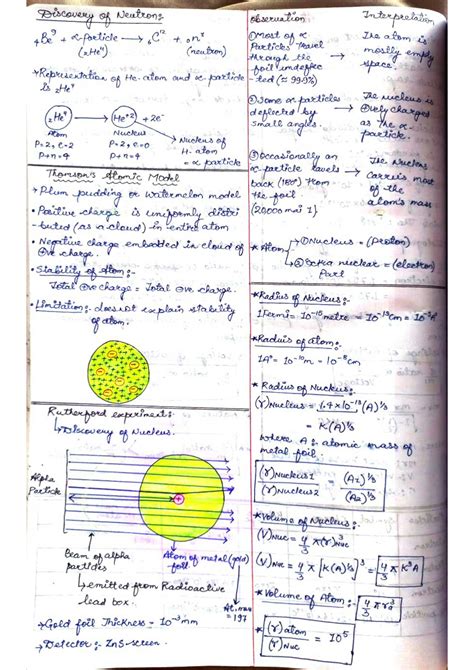 Discovery of Neutron:-
₄Be⁹ + α particle → ₆C¹² + ₀n¹
(₂He⁴) (neutron)
Representation of He-atom and α-particle
is ₂He⁴
₂He⁴ → He⁺² + 2e⁻
Atom Nucleus
P=2, e=2 P=2, e=0
P+n=4 P+n=4
Nucleus of
H-atom
= α particle
Thomson's Atomic Model
Plum pudding or Watermelon model
Positive charge is uniformly distri
buted (as a cloud) in entire atom
Negative charge embedded in cloud of
⊕ve charge.
Stability of Atom:-
Total ⊕ve charge = Total ⊖ve charge.
Limitation:- does not explain stability
of atom.
Rutherford experiment:-
Discovery of Nucleus.
Alpha
Particle
Beam of alpha
particles
Atom of metal (gold)
foil
At. mass
= 197
emitted from Radioactive
lead box.
Gold foil Thickness = 10⁻³ mm
Detector:- ZnS screen.
Observation Interpretation
① Most of α
Particles travel
through the
foil undeflec
ted (≈ 99.9%)
The atom is
mostly empty
space.
② Some α particles
deflected by
small angles.
The nucleus is
⊕vely charged
as the α-
particle.
③ Occasionally an
α-particle travels
back (180°) from
the foil
(20000 mai 1)
The Nucleus
Carries most
of the
atom's mass
* Atom
① Nucleus = (Proton)
② Extra nuclear = (electron)
Part
* Radius of Nucleus:-
1 Fermi = 10⁻¹⁵ metre = 10⁻¹³ cm = 10⁻⁵ A°
* Radius of atom:-
1A° = 10⁻¹⁰ m = 10⁻⁸ cm
* Radius of Nucleus:-
(r) Nucleus = 1.4×10⁻¹³ (A)^⅓
= K(A)^⅓
where A: atomic mass of
metal foil.
(r) Nucleus 1 / (r) Nucleus 2 = (A₁)^⅓ / (A₂)^⅓
* Volume of Nucleus:-
(V)Nuc = 4/3 π (r)³Nuc
(V)Nuc = 4/3 π [K(A)^⅓]³ = 4/3 π K³A
* Volume of Atom:- 4/3 π r³
* (r) atom / (r) Nuc = 10⁵